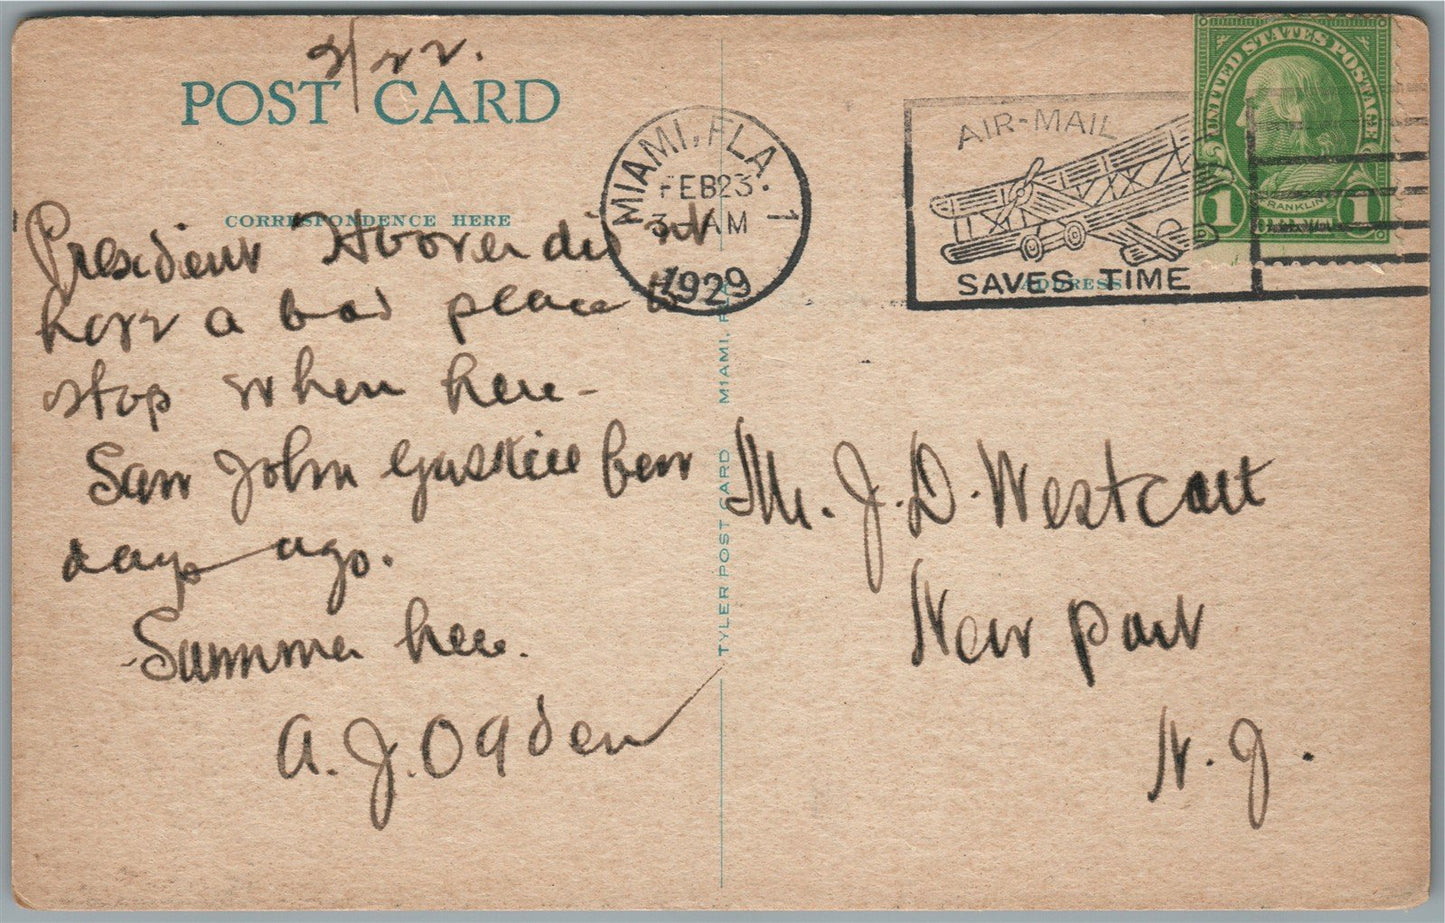 2/22.
POST CARD
CORRESPONDENCE HERE
President Hoover did not
have a bad place to
stop when here -
Saw John Gaskill few
days ago.
Summer here.
A. J. Ogden
TYLER POST CARD MIAMI, FLA
MIAMI, FLA.
FEB 23
3 AM
1929
1
AIR-MAIL
SAVES TIME
ADDRESS
UNITED STATES POSTAGE
FRANKLIN
1 1
Mr. J. D. Westcott
New port
N. J.